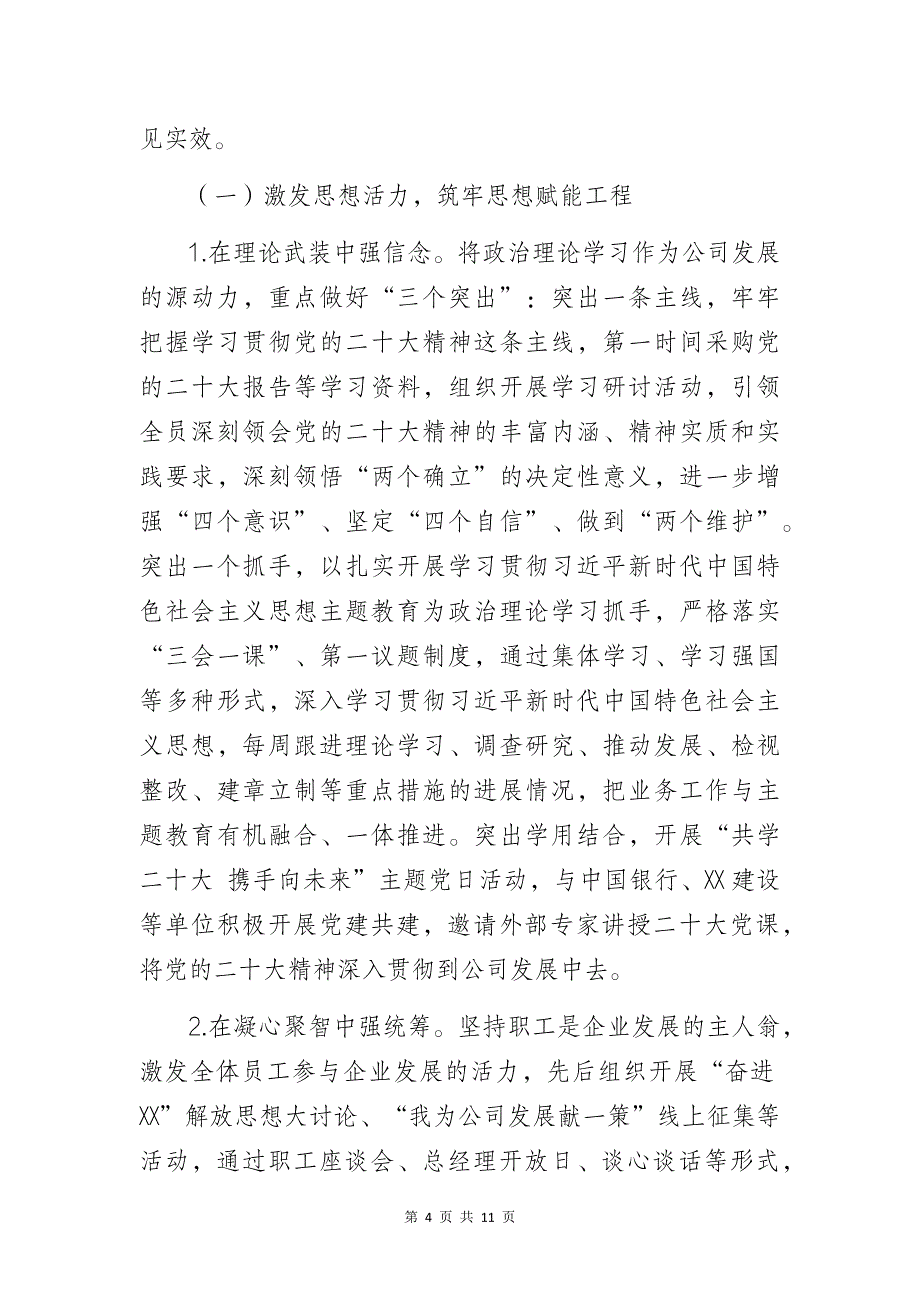 见实效。
（一）激发思想活力，筑牢思想赋能工程
1.在理论武装中强信念。将政治理论学习作为公司发展
的源动力，重点做好“三个突出”：突出一条主线，牢牢
把握学习贯彻党的二十大精神这条主线，第一时间采购党
的二十大报告等学习资料，组织开展学习研讨活动，引领
全员深刻领会党的二十大精神的丰富内涵、精神实质和实
践要求，深刻领悟“两个确立”的决定性意义，进一步增
强“四个意识”、坚定“四个自信”、做到“两个维护”。
突出一个抓手，以扎实开展学习贯彻习近平新时代中国特
色社会主义思想主题教育为政治理论学习抓手，严格落实
“三会一课”、第一议题制度，通过集体学习、学习强国
等多种形式，深入学习贯彻习近平新时代中国特色社会主
义思想，每周跟进理论学习、调查研究、推动发展、检视
整改、建章立制等重点措施的进展情况，把业务工作与主
题教育有机融合、一体推进。突出学用结合，开展“共学
二十大 携手向未来”主题党日活动，与中国银行、XX建设
等单位积极开展党建共建，邀请外部专家讲授二十大党课，
将党的二十大精神深入贯彻到公司发展中去。
2.在凝心聚智中强统筹。坚持职工是企业发展的主人翁，
激发全体员工参与企业发展的活力，先后组织开展“奋进
XX”解放思想大讨论、“我为公司发展献一策”线上征集等
活动，通过职工座谈会、总经理开放日、谈心谈话等形式，
第 4 页 共 11 页